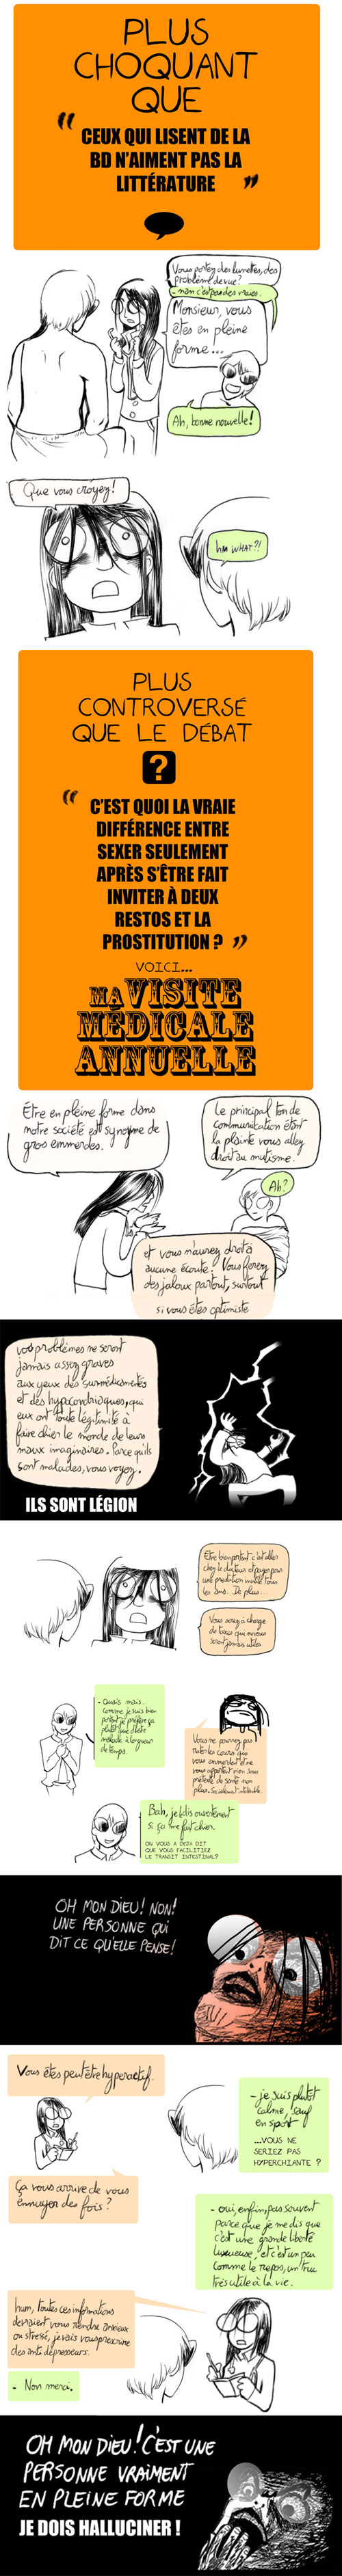 PLUS
CHOQUANT
QUE
" CEUX QUI LISENT DE LA
BD N'AIMENT PAS LA
LITTÉRATURE "
Vous portez des lunettes, des
problème de vue?
- nan c'est pas des vraies.
Monsieur, vous
êtes en pleine
forme...
Ah, bonne nouvelle!
Que vous croyez!
hm WHAT?!
PLUS
CONTROVERSÉ
QUE LE DÉBAT
?
" C'EST QUOI LA VRAIE
DIFFÉRENCE ENTRE
SEXER SEULEMENT
APRÈS S'ÊTRE FAIT
INVITER À DEUX
RESTOS ET LA
PROSTITUTION ? "
VOICI...
MA VISITE
MÉDICALE
ANNUELLE
Être en pleine forme dans
notre société est synonyme de
gros emmerdes.
Le principal ton de
communication étant
la plainte vous allez
droit au mutisme.
Ah?
et vous n'aurez droit à
aucune écoute. Vous ferez
des jaloux partout, surtout
si vous êtes optimiste
vos problèmes ne seront
jamais assez graves
aux yeux des surmédicamentés
et des hypocondriaques, qui
eux ont toute légitimité à
faire chier le monde de leurs
maux imaginaires. Parce qu'ils
sont malades, vous voyez.
ILS SONT LÉGION
Être bien portant c'est aller
chez le docteur et payer pour
une prestation inutile tous
les ans. De plus...
Vous serez à charge
de taxes qui ne vous
seront jamais utiles
- Ouais mais..
comme je suis bien
portant je préfère ça
plutôt que d'être
malade à longueur
de temps.
Vous ne pourrez pas
rater les cours qui
vous emmerdent et ne
vous apportent rien sous
prétexte de santé non
plus.
Bah, je le dis ouvertement
si ça me fait chier.
ON VOUS A DÉJÀ DIT
QUE VOUS FACILITIEZ
LE TRANSIT INTESTINAL?
OH MON DIEU! NON!
UNE PERSONNE QUI
DIT CE QU'ELLE PENSE!
Vous êtes peut être hyperactif.
- je suis plutôt
calme, sauf
en sport
...VOUS NE
SERIEZ PAS
HYPERCHIANTE ?
Ça vous arrive de vous
ennuyer des fois ?
- oui, enfin, pas souvent
parce que je me dis que
c'est une grande liberté
luxueuse, et c'est un peu
comme le repos, un truc
très utile à la vie.
hum, toutes ces informations
devraient vous rendre anxieux
ou stressé, je vais vous prescrire
des anti dépresseurs.
- Non merci.
OH MON DIEU! C'EST UNE
PERSONNE VRAIMENT
EN PLEINE FORME
JE DOIS HALLUCINER !